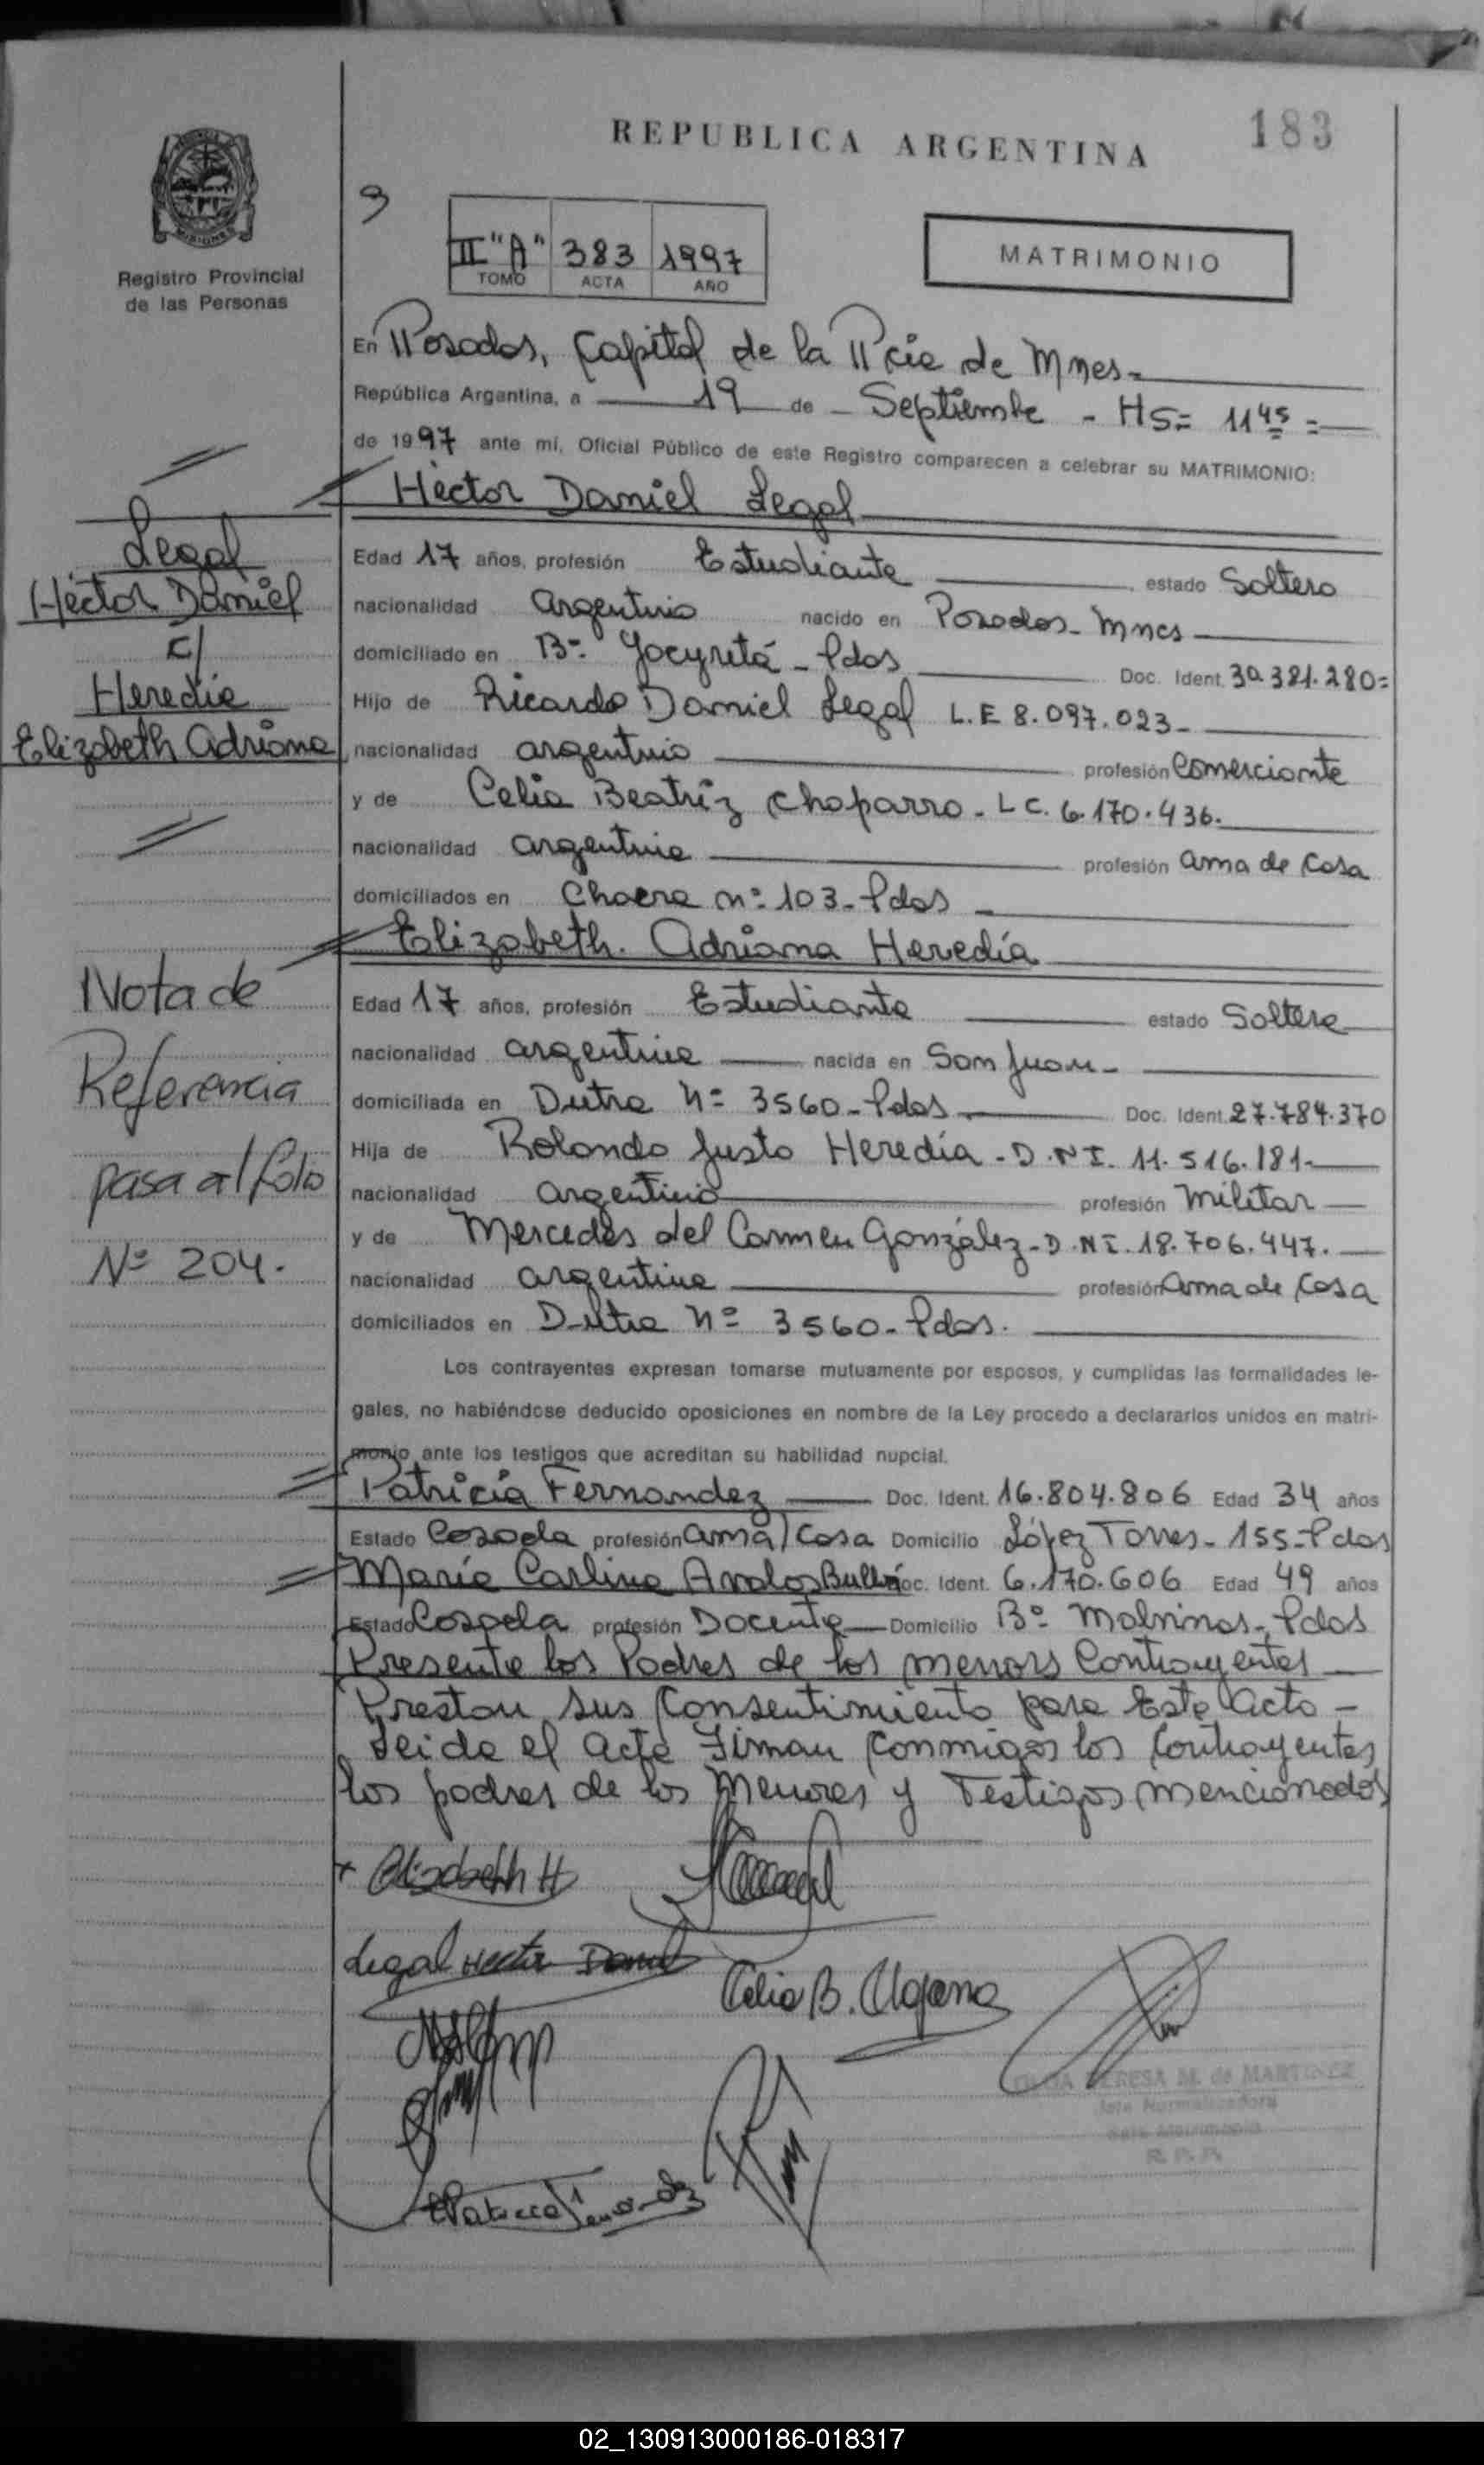 REPUBLICA ARGENTINA
183
Registro Provincial
de las Personas
II "A" 383 1997
TOMO ACTA AÑO
MATRIMONIO
En Posadas, Capital de la Pcia de Mnes-
República Argentina, a 19 de - Septiembre - HS= 11 45 =
de 1997 ante mí, Oficial Público de este Registro comparecen a celebrar su MATRIMONIO:
Héctor Daniel Legal
Edad 17 años, profesión Estudiante estado Soltero
nacionalidad argentino nacido en Posadas- Mnes
domiciliado en Bº Yacyretá - Pdas Doc. Ident. 30.381.280=
Hijo de Ricardo Daniel Legal L.E 8.097.023-
nacionalidad argentino profesión Comerciante
y de Celia Beatriz Chaparro - LC. 6.170.436.
nacionalidad argentina profesión ama de Casa
domiciliados en Chacra nº 103- Pdas
Elizabeth. Adriana Heredia
Edad 17 años, profesión Estudiante estado Soltera
nacionalidad argentina nacida en San Juan-
domiciliada en Dutra Nº 3560- Pdas Doc. Ident. 27.784.370
Hija de Rolando Justo Heredia - D.NI. 11.516.181-
nacionalidad argentino profesión Militar
y de Mercedes del Carmen González- D.NI. 18.706.447.
nacionalidad argentina profesión ama de Casa
domiciliados en Dutra Nº 3560- Pdas.
Los contrayentes expresan tomarse mutuamente por esposos, y cumplidas las formalidades le-
gales, no habiéndose deducido oposiciones en nombre de la Ley procedo a declararlos unidos en matri-
monio ante los testigos que acreditan su habilidad nupcial.
Patricia Fernandez Doc. Ident. 16.804.806 Edad 34 años
Estado Casada profesión ama/Casa Domicilio López Torres- 155- Pdas
María Carlina Avalos Doc. Ident. 6.170.606 Edad 49 años
Estado Casada profesión Docente Domicilio Bº Malvinas- Pdas
Presente los Padres de los menors Contrayentes
Prestan sus Consentimiento para Este Acto -
Leida el acta Firman conmigo los Contrayentes
los padres de los Menores y Testigos mencionados
Legal
Héctor Daniel
c/
Heredia
Elizabeth Adriana
Nota de
Referencia
pasa al folio
Nº 204.
Elizabeth H
Legal Hector Daniel
Celia B.
TERESA M. de MARTINEZ
Patricia Fernandez
02_130913000186-018317